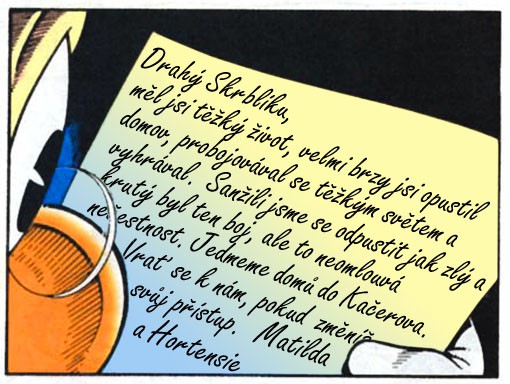 Drahý Skrblíku,
měl jsi těžký život, velmi brzy jsi opustil
domov, probojovával se těžkým světem a
vyhrával. Sanžili jsme se odpustit jak zlý a
krutý byl ten boj, ale to neomlouvá
nečestnost. Jedmeme domů do Kačerova.
Vrať se k nám, pokud změníš
svůj přístup. Matilda
a Hortensie